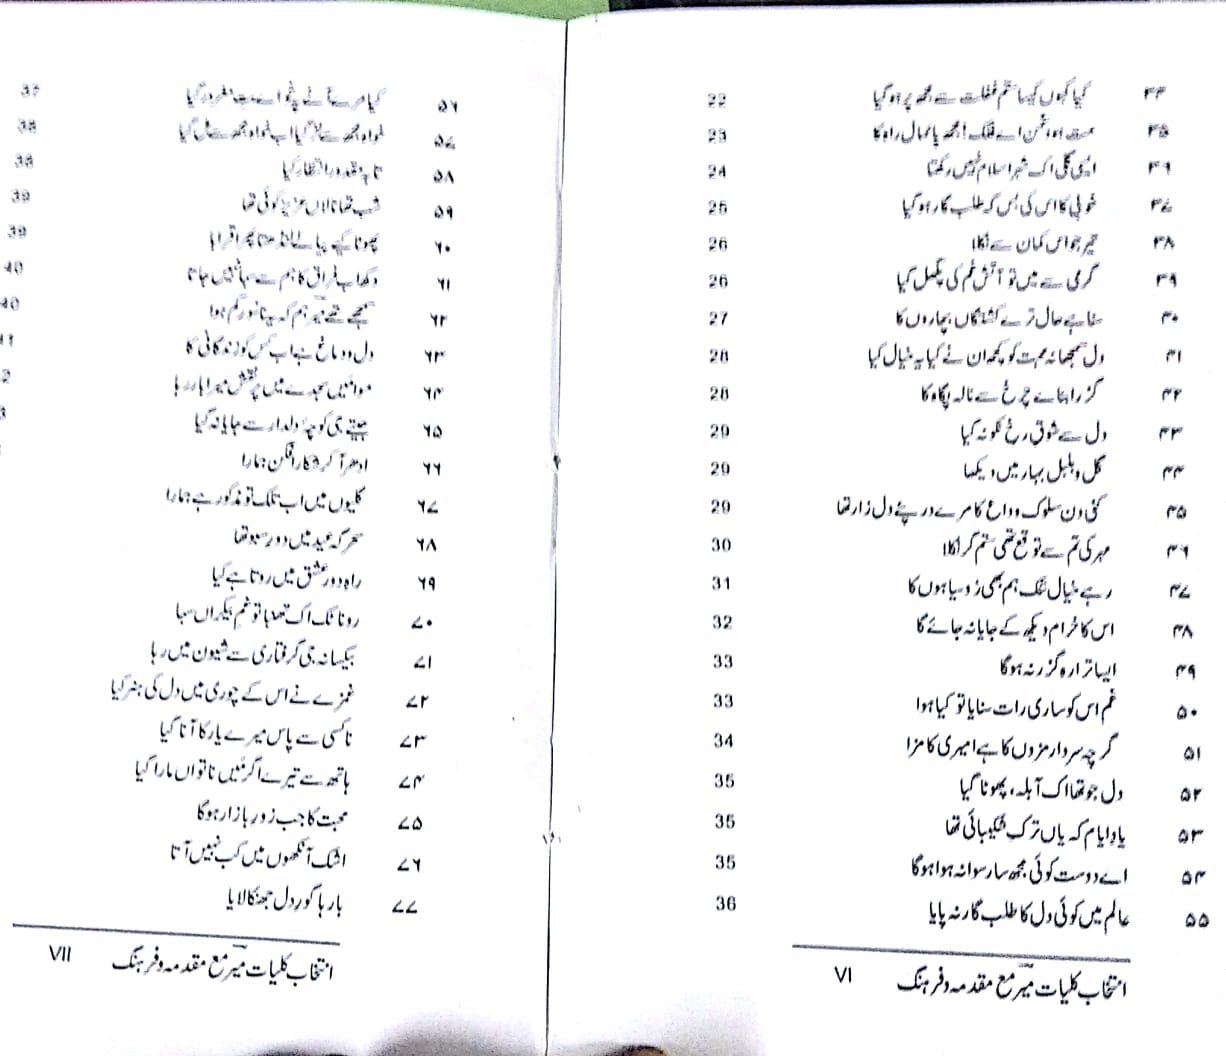 ۳۴ کیا کہوں کیسا ستم غفلت سے مجھ پر ہو گیا 22
۳۵ مت ہو دشمن اے فلک! مجھ پائمال راہ کا 23
۳۶ ایسی گلی اک شہر اسلام نہیں رکھتا 24
۳۷ خوبی کا اس کی بس کہ طلب گار ہو گیا 25
۳۸ تیر جو اس کمان سے نکلا 26
۳۹ گرمی سے میں تو آتش غم کی پگھل گیا 26
۴۰ سنا ہے حال ترے کشتگاں بچاروں کا 27
۴۱ دل سمجھا نہ محبت کو کچھ ان نے کیا یہ خیال کیا 28
۴۲ گزرا بنائے چرخ سے نالہ پگاہ کا 28
۴۳ دل سے شوق رخ نکو نہ گیا 29
۴۴ گل و بلبل بہار میں دیکھا 29
۴۵ کئی دن سلوک وداع کا مرے درپئے دل زار تھا 29
۴۶ مہر کی تم سے توقع تھی ستم گر نکلا 30
۴۷ رہے خیال تنک ہم بھی رُو سیاہوں کا 31
۴۸ اس کا خرام دیکھ کے جایا نہ جائے گا 32
۴۹ ایسا ترا رہ گزر نہ ہوگا 33
۵۰ غم اس کو ساری رات سنایا تو کیا ہوا 33
۵۱ گرچہ سردار مزوں کا ہے امیری کا مزا 34
۵۲ دل جو تھا اک آبلہ، پھوٹا گیا 35
۵۳ یاد ایام کہ یاں ترک شکیبائی تھا 35
۵۴ اے دوست کوئی مجھ سا رسوا نہ ہوا ہوگا 35
۵۵ عالم میں کوئی دل کا طلب گار نہ پایا 36
انتخاب کلیات میرؔ مع مقدمہ و فرہنگ VI
۵۶ کیا مرے آنے پہ تو اے بت مغرور گیا 37
۵۷ خواہ مجھ سے لڑ گیا اب خواہ مجھ سے مل گیا 38
۵۸ تا بہ مقدور انتظار کیا 38
۵۹ شب تھا نالاں عزیز کوئی تھا 39
۶۰ پھوٹا کیے پیالے لنڈھتا پھرا قرابا 39
۶۱ دکھ اب فراق کا ہم سے سہا نہیں جاتا 40
۶۲ سمجھے تھے میرؔ ہم کہ یہ ناسور کم ہوا 40
۶۳ دل و دماغ ہے اب کس کو زندگانی کا
۶۴ موا میں سجدے میں پر نقش میرا بار رہا
۶۵ جیتے جی کوچۂ دلدار سے جایا نہ گیا
۶۶ ادھر آ کر شکار افگن ہمارا
۶۷ گلیوں میں اب تلک تو مذکور ہے ہمارا
۶۸ سحر گہ عید میں دور سبو تھا
۶۹ راہ دور عشق میں روتا ہے کیا
۷۰ رونا ٹک اک تھما تو غم بیکراں سہا
۷۱ بیکسانہ جی گرفتاری سے شیون میں رہا
۷۲ غمزے نے اس کے چوری میں دل کی ہنر کیا
۷۳ ناکسی سے پاس میرے یار کا آنا گیا
۷۴ ہاتھ سے تیرے اگر میں ناتواں مارا گیا
۷۵ محبت کا جب زور بازار ہوگا
۷۶ اشک آنکھوں میں کب نہیں آتا
۷۷ بارہا گور دل جھنکا لایا
انتخاب کلیات میرؔ مع مقدمہ و فرہنگ VII